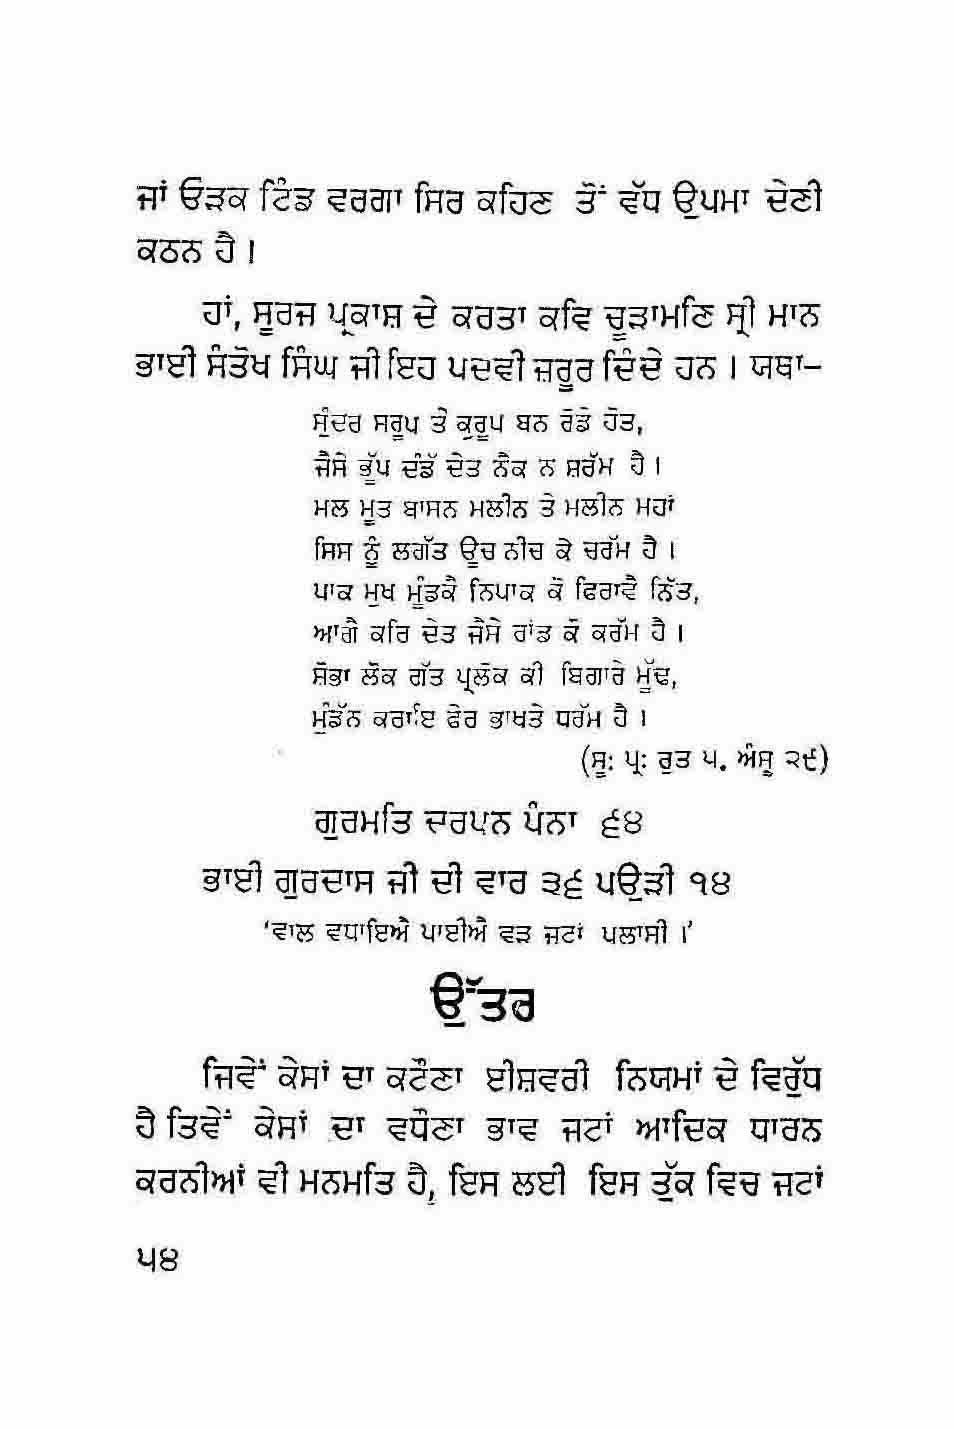 ਜਾਂ ਓੜਕ ਟਿੰਡ ਵਰਗਾ ਸਿਰ ਕਹਿਣ ਤੋਂ ਵੱਧ ਉਪਮਾ ਦੇਣੀ
ਕਠਨ ਹੈ ।
ਹਾਂ, ਸੂਰਜ ਪ੍ਰਕਾਸ਼ ਦੇ ਕਰਤਾ ਕਵਿ ਚੂੜਾਮਣਿ ਸ੍ਰੀ ਮਾਨ
ਭਾਈ ਸੰਤੋਖ ਸਿੰਘ ਜੀ ਇਹ ਪਦਵੀ ਜ਼ਰੂਰ ਦਿੰਦੇ ਹਨ । ਯਥਾ–
ਸੁੰਦਰ ਸਰੂਪ ਤੇ ਕੁਰੂਪ ਬਨ ਰੋਡੇ ਹੋਤ,
ਜੈਸੇ ਭੂੱਪ ਦੰਡੱ ਦੇਤ ਨੈਕ ਨ ਸ਼ਰੱਮ ਹੈ ।
ਮਲ ਮੂਤ ਬਾਸਨ ਮਲੀਨ ਤੇ ਮਲੀਨ ਮਹਾਂ
ਜਿਸ ਨੂੰ ਲਗੱਤ ਊਚ ਨੀਚ ਕੇ ਚਰੱਮ ਹੈ ।
ਪਾਕ ਮੁਖ ਮੂੰਡਕੈ ਨਿਪਾਕ ਕੋ ਫਿਰਾਵੈ ਨਿੱਤ,
ਆਗੈ ਕਰਿ ਦੇਤ ਜੈਸੇ ਰਾਂਡ ਕੋ ਕਰੱਮ ਹੈ ।
ਸ਼ੋਭਾ ਲੋਕ ਗੱਤ ਪ੍ਰਲੋਕ ਕੀ ਬਿਗਾਰੇ ਮੂੱਢ,
ਮੁੰਡੱਨ ਕਰਾਇ ਫੇਰ ਭਾਖਤੇ ਧਰੱਮ ਹੈ ।
(ਸੂ: ਪ੍ਰ: ਰੁਤ ੫. ਅੰਸੂ ੨੯)
ਗੁਰਮਤਿ ਦਰਪਨ ਪੰਨਾ ੬੪
ਭਾਈ ਗੁਰਦਾਸ ਜੀ ਦੀ ਵਾਰ ੩੬ ਪਉੜੀ ੧੪
‘ਵਾਲ ਵਧਾਇਐ ਪਾਈਐ ਵੜ ਜਟਾਂ ਪਲਾਸੀ ।’
ਉੱਤਰ
ਜਿਵੇਂ ਕੇਸਾਂ ਦਾ ਕਟੌਣਾ ਈਸ਼ਵਰੀ ਨਿਯਮਾਂ ਦੇ ਵਿਰੁੱਧ
ਹੈ ਤਿਵੇਂ ਕੇਸਾਂ ਦਾ ਵਧੌਣਾ ਭਾਵ ਜਟਾਂ ਆਦਿਕ ਧਾਰਨ
ਕਰਨੀਆਂ ਵੀ ਮਨਮਤਿ ਹੈ, ਇਸ ਲਈ ਇਸ ਤੁੱਕ ਵਿਚ ਜਟਾਂ
੫੪